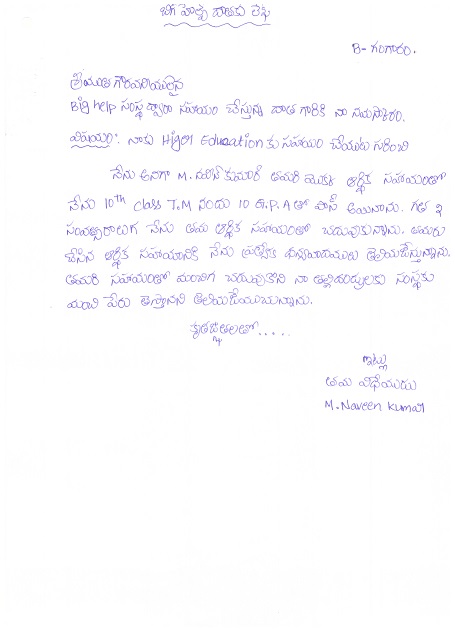 బిగ్ హెల్ప్ దాతకు లేఖ
B- గంగారం.
శ్రీయుత గౌరవనీయులైన
Big help సంస్థ ద్వారా సహాయం చేస్తున్న దాత గారికి నా నమస్కారం.
విషయం:- నాకు Higer Education కు సహాయం చేయుట గురించి
నేను అనగా M. నవీన్ కుమార్ తమరి యొక్క ఆర్థిక సహాయంతో
నేను 10th class T.M నందు 10 G.P.A తో పాస్ అయినాను. గత 3
సంవత్సరాలుగ నేను తమ ఆర్థిక సహాయంతో చదువుకున్నాను. తమరు
చేసిన ఆర్థిక సహాయానికి నేను ప్రత్యేక ధన్యవాదములు తెలియజేస్తున్నాను.
తమరి సహాయంతో మంచిగ చదువుకొని నా తల్లిదండ్రులకు సంస్థకు
మంచి పేరు తెస్తానని తెలియజేయుచున్నాను.
కృతజ్ఞతలతో.....
ఇట్లు
తమ విధేయుడు
M. Naveen kumar